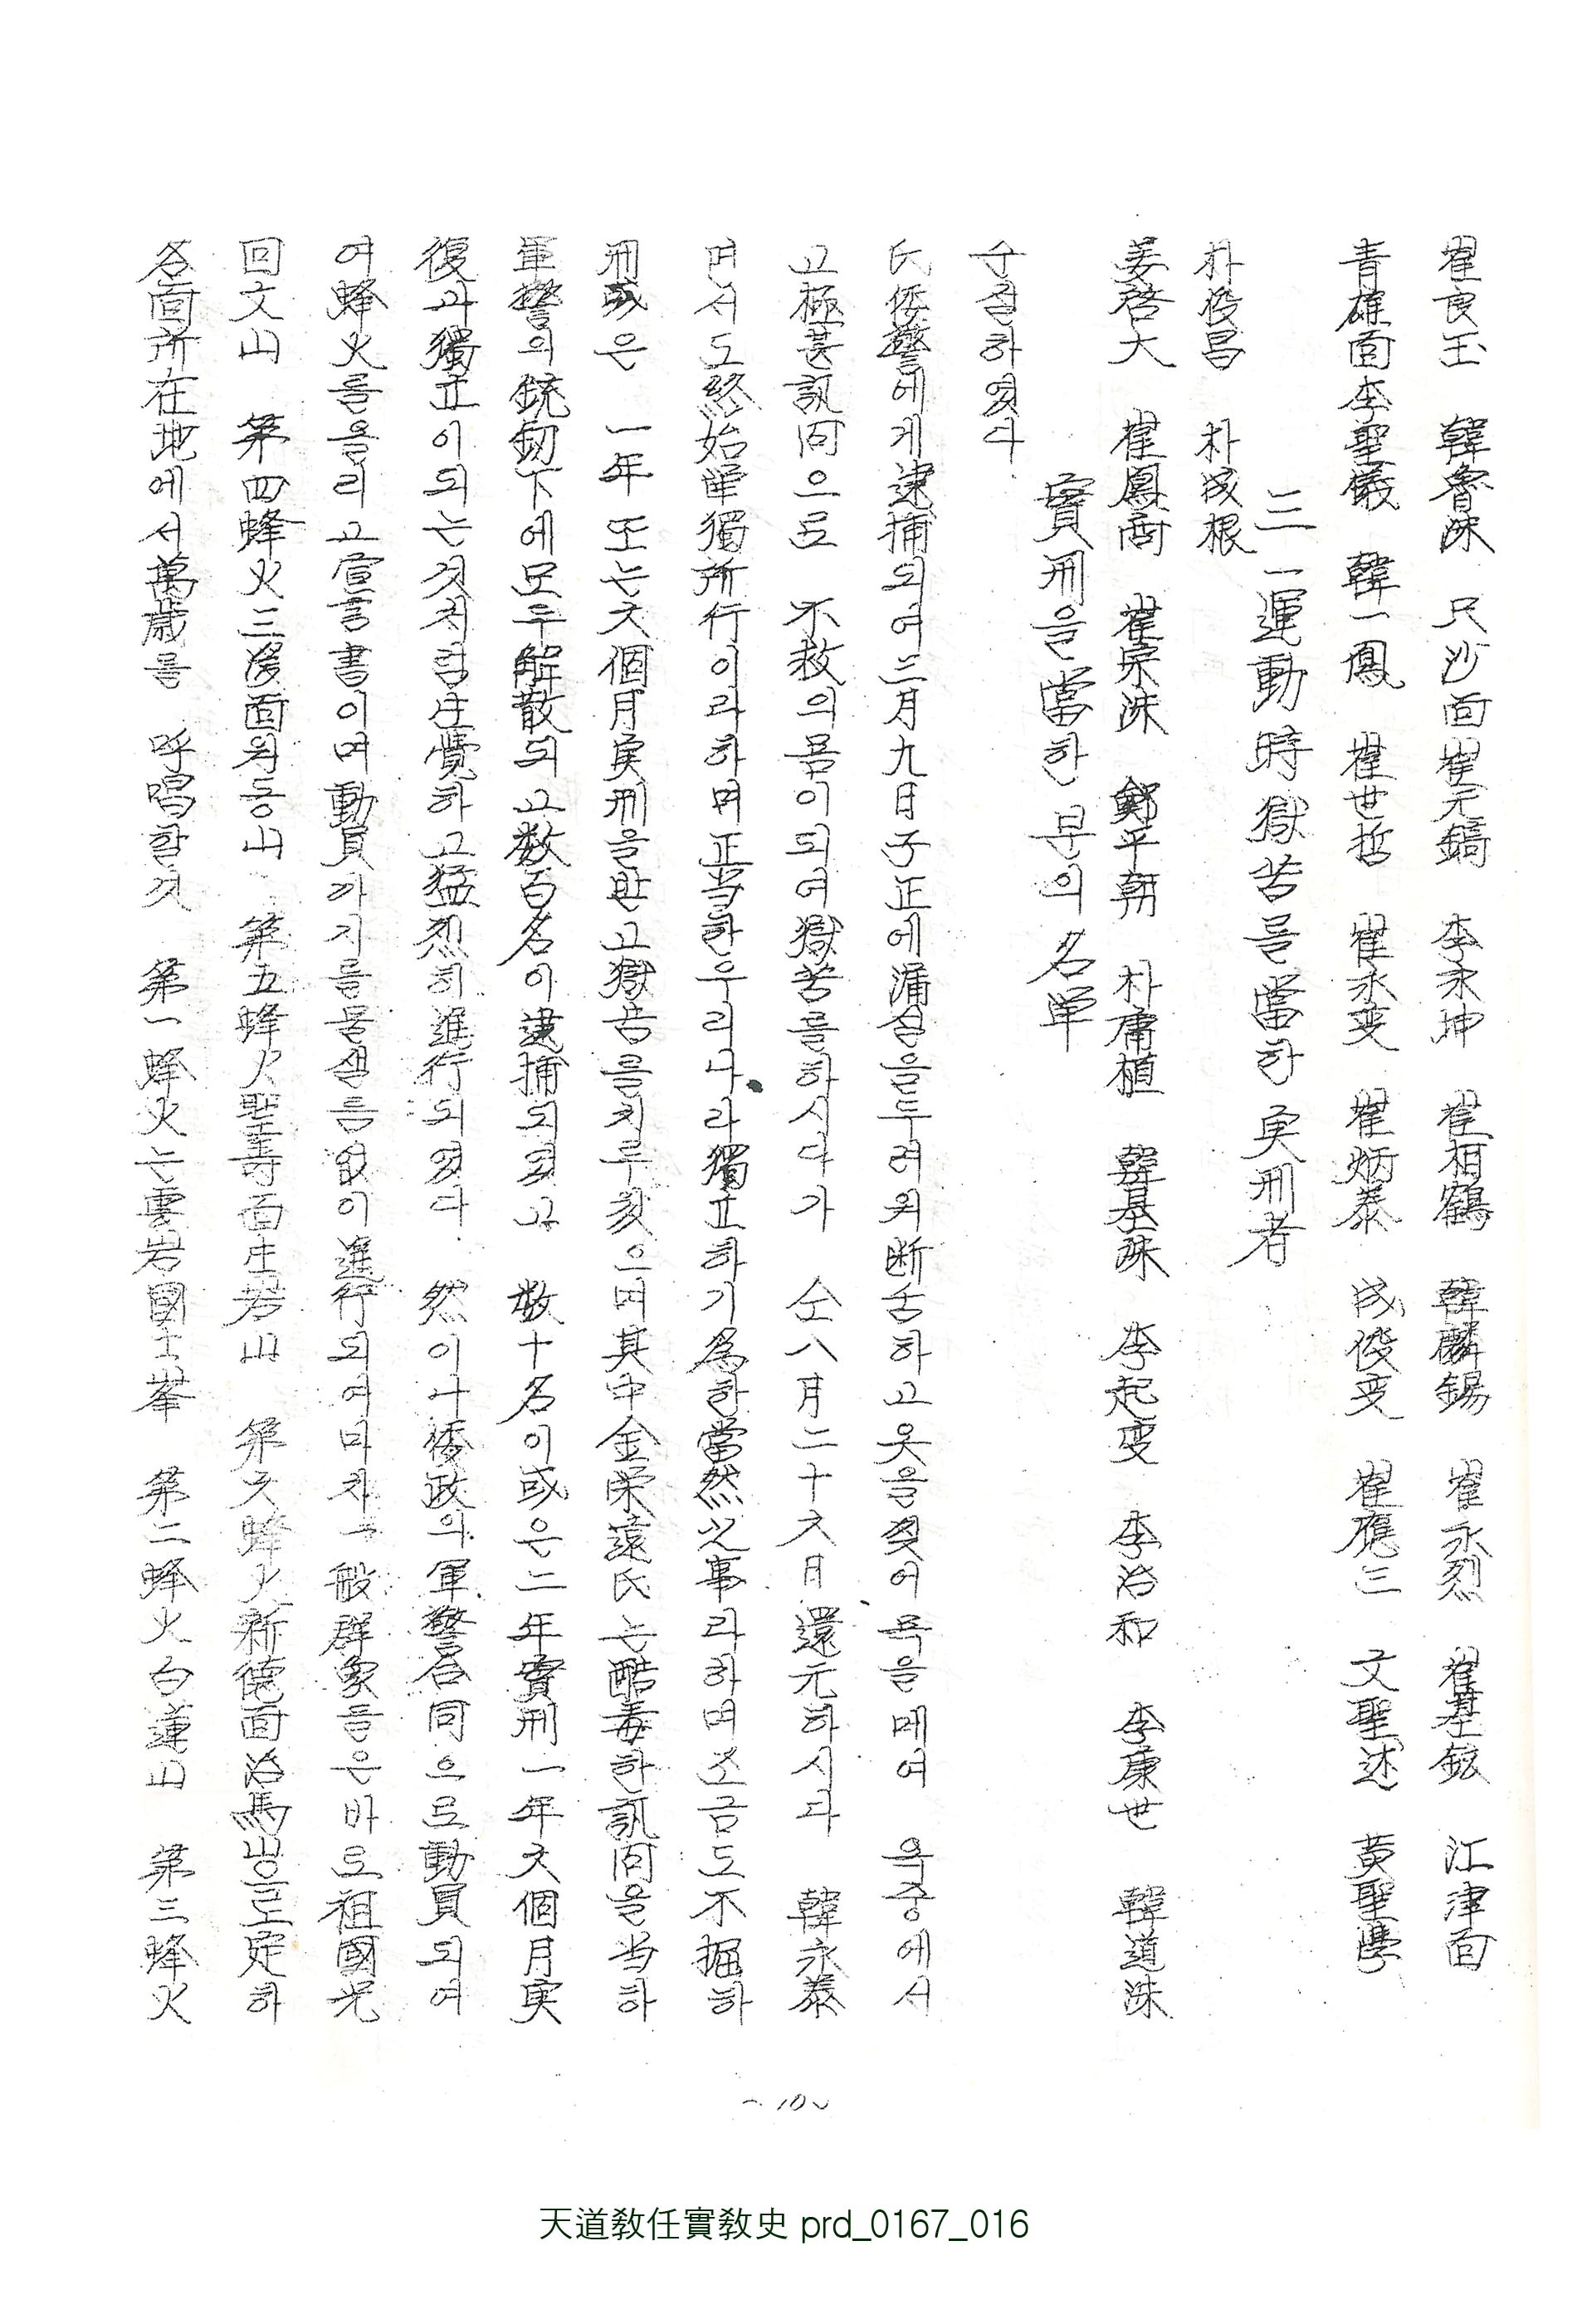 各面所在地에서萬歲를 呼唱할것 第一蜂火는雲岩國士峯 第二蜂火白蓮山 第三蜂火
回文山 第四蜂火三溪面원동山 第五蜂火聖壽面庄若山 第六蜂火新德面治馬山으로定하
여蜂火를올리고宣言書이며動員까지를물샘틈없이進行되여마치一般群象들은바로祖國光
復과獨立이되는것처럼庄覺하고猛烈히進行되였다. 然이나倭政의軍警合同으로動員되여
軍警의銃釼下에모두解散되고数百名이逮捕되였고 数十名이或은二年實刑一年六個月実
刑或은 一年 또는六個月実刑을받고獄苦를치루젔으며其中金栄遠氏는酷毒한訊问을当하
며서도終始単獨所行이라하며正当한우리나라獨立하기爲한當然之事라하며조금도不掘하
고極甚訊问으로 不救의몸이되여獄苦를하시다가 仝八月二十六日還元하시다 韓永泰
氏倭警에게逮捕되여三月九日子正에漏섬을두려워断舌하고옷을찢어목을메여 옥중에서
수절하였다.
實刑을當한 분의 名単
姜啓大 崔鳳商 崔宗洙 鄭平朝 朴庸植 韓基洙 李起変 李治和 李康世 韓道洙
朴俊昌 朴成根
三一運動時獄苦를當한実刑者
青雄面李聖儀 韓一鳳 崔世哲 崔永変 崔炳泰 成俊変 崔應三 文聖述 黄聖學
崔良玉 韓魯洙 只沙面崔元鎬 李永坤 崔相鶴 韓麟錫 崔永烈 崔基鉉 江津面
-10-
天道敎任實敎史 prd_0167_016